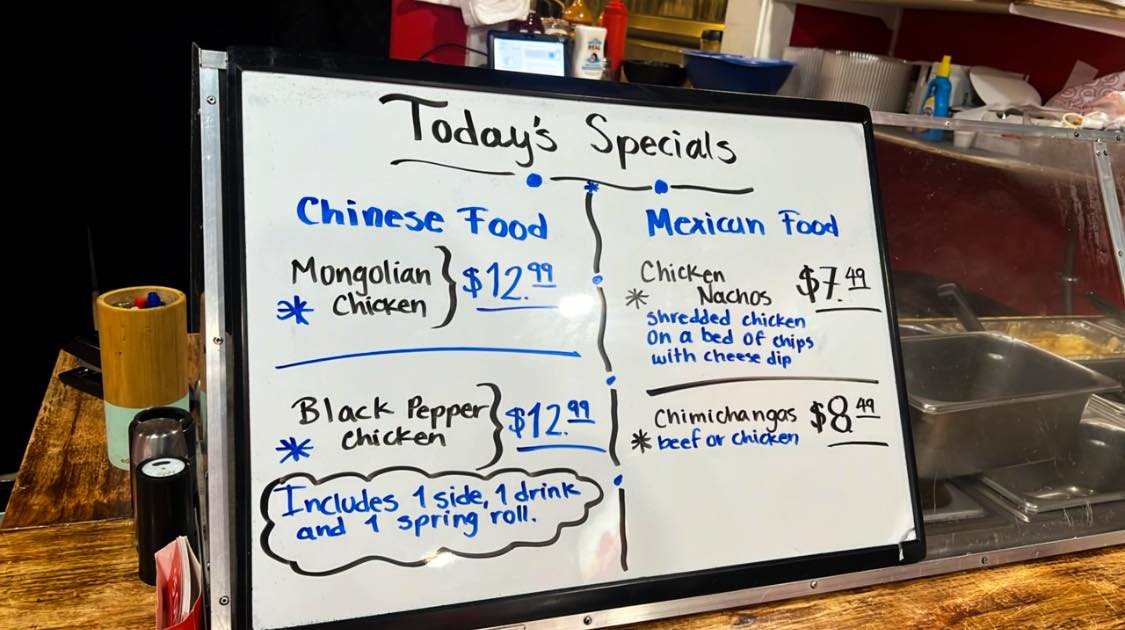 Today's Specials
Chinese Food
Mongolian
Chicken
$12.99
Black Pepper
chicken
$12.99
Includes 1 side, 1 drink
and 1 spring roll.
Mexican Food
Chicken
Nachos
$7.49
shredded chicken
on a bed of chips
with cheese dip
Chimichangas
$8.49
beef or chicken